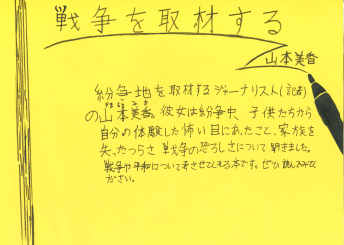 戦争を取材する
山本美香
紛争地を取材するジャーナリスト(記者)
の山本美香。彼女は紛争中、子供たちから
自分の体験した怖い目にあたこと、家族を
失ったつらさ 戦争の恐ろしさについて 聞きました。
戦争や平和について考させてくれる本です。ぜひ読んでみてく
ださい。